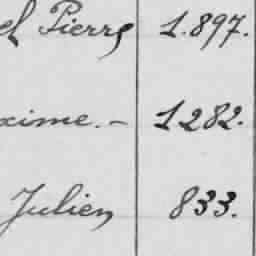 el Pierre 1.897.
xime. – 1282.
Julien 833.